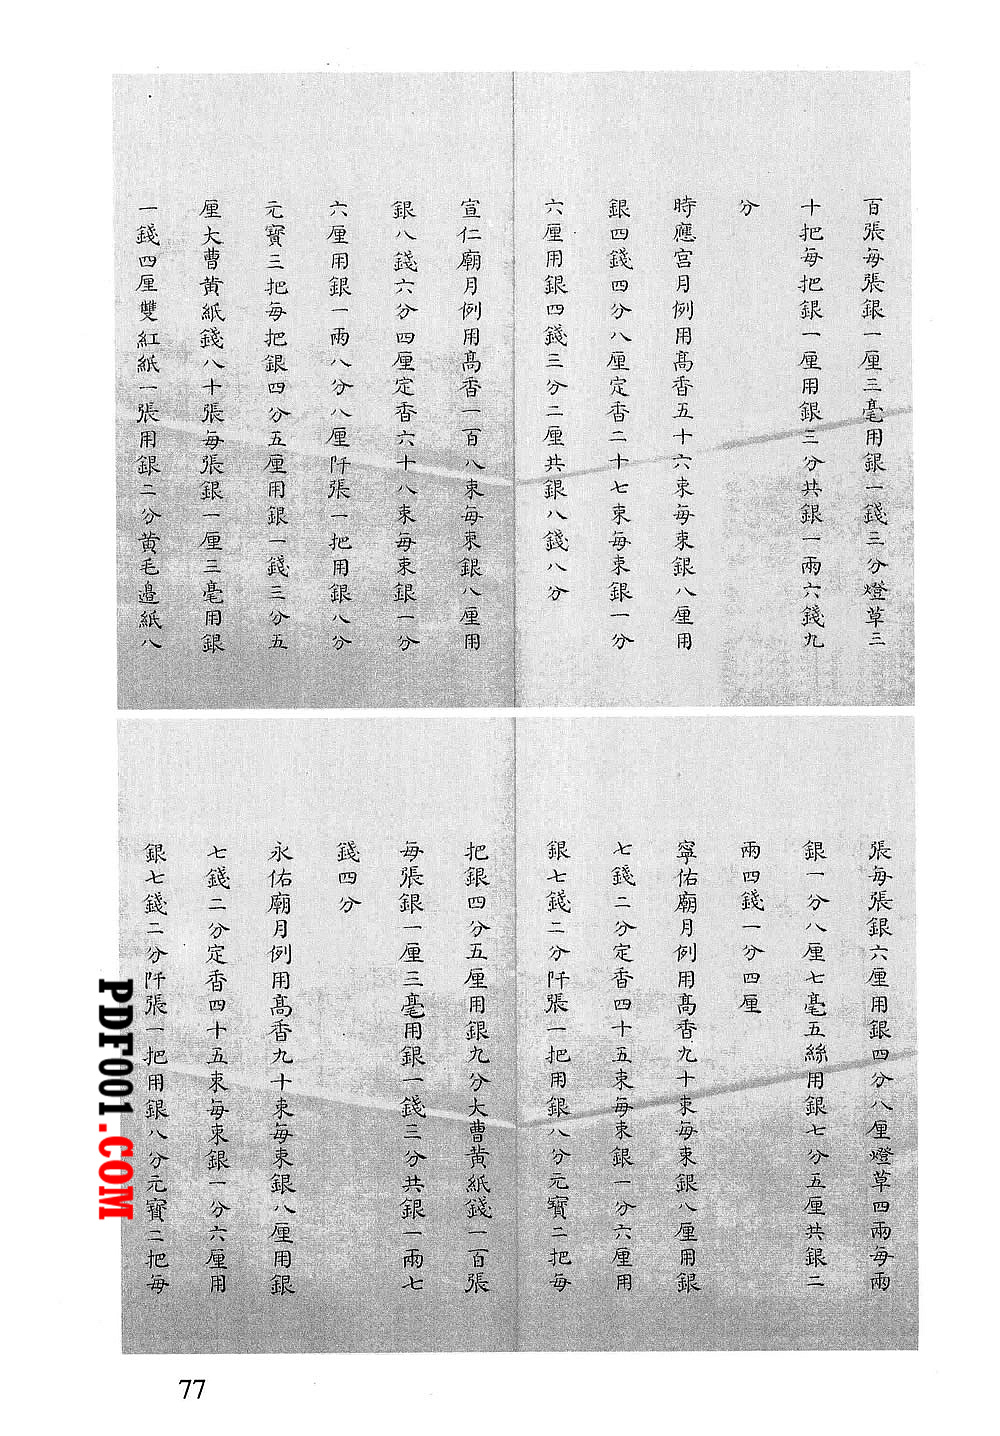 百張每張銀一厘三毫用銀一錢三分燈草三
十把每把銀一厘用銀三分共銀一兩六錢九
分
時應宮月例用高香五十六束每束銀八厘用
銀四錢四分八厘定香二十七束每束銀一分
六厘用銀四錢三分二厘共銀八錢八分
宣仁廟月例用高香一百八束每束銀八厘用
銀八錢六分四厘定香六十八束每束銀一分
六厘用銀一兩八分八厘阡張一把用銀八分
元寶三把每把銀四分五厘用銀一錢三分五
厘大曹黃紙錢八十張每張銀一厘三毫用銀
一錢四厘雙紅紙一張用銀二分黃毛邊紙八
張每張銀六厘用銀四分八厘燈草四兩每兩
銀一分八厘七毫五絲用銀七分五厘共銀二
兩四錢一分四厘
寧佑廟月例用高香九十束每束銀八厘用銀
七錢二分定香四十五束每束銀一分六厘用
銀七錢二分阡張一把用銀八分元寶二把每
把銀四分五厘用銀九分大曹黃紙錢一百張
每張銀一厘三毫用銀一錢三分共銀一兩七
錢四分
永佑廟月例用高香九十束每束銀八厘用銀
七錢二分定香四十五束每束銀一分六厘用
銀七錢二分阡張一把用銀八分元寶二把每
PDF001.COM
77